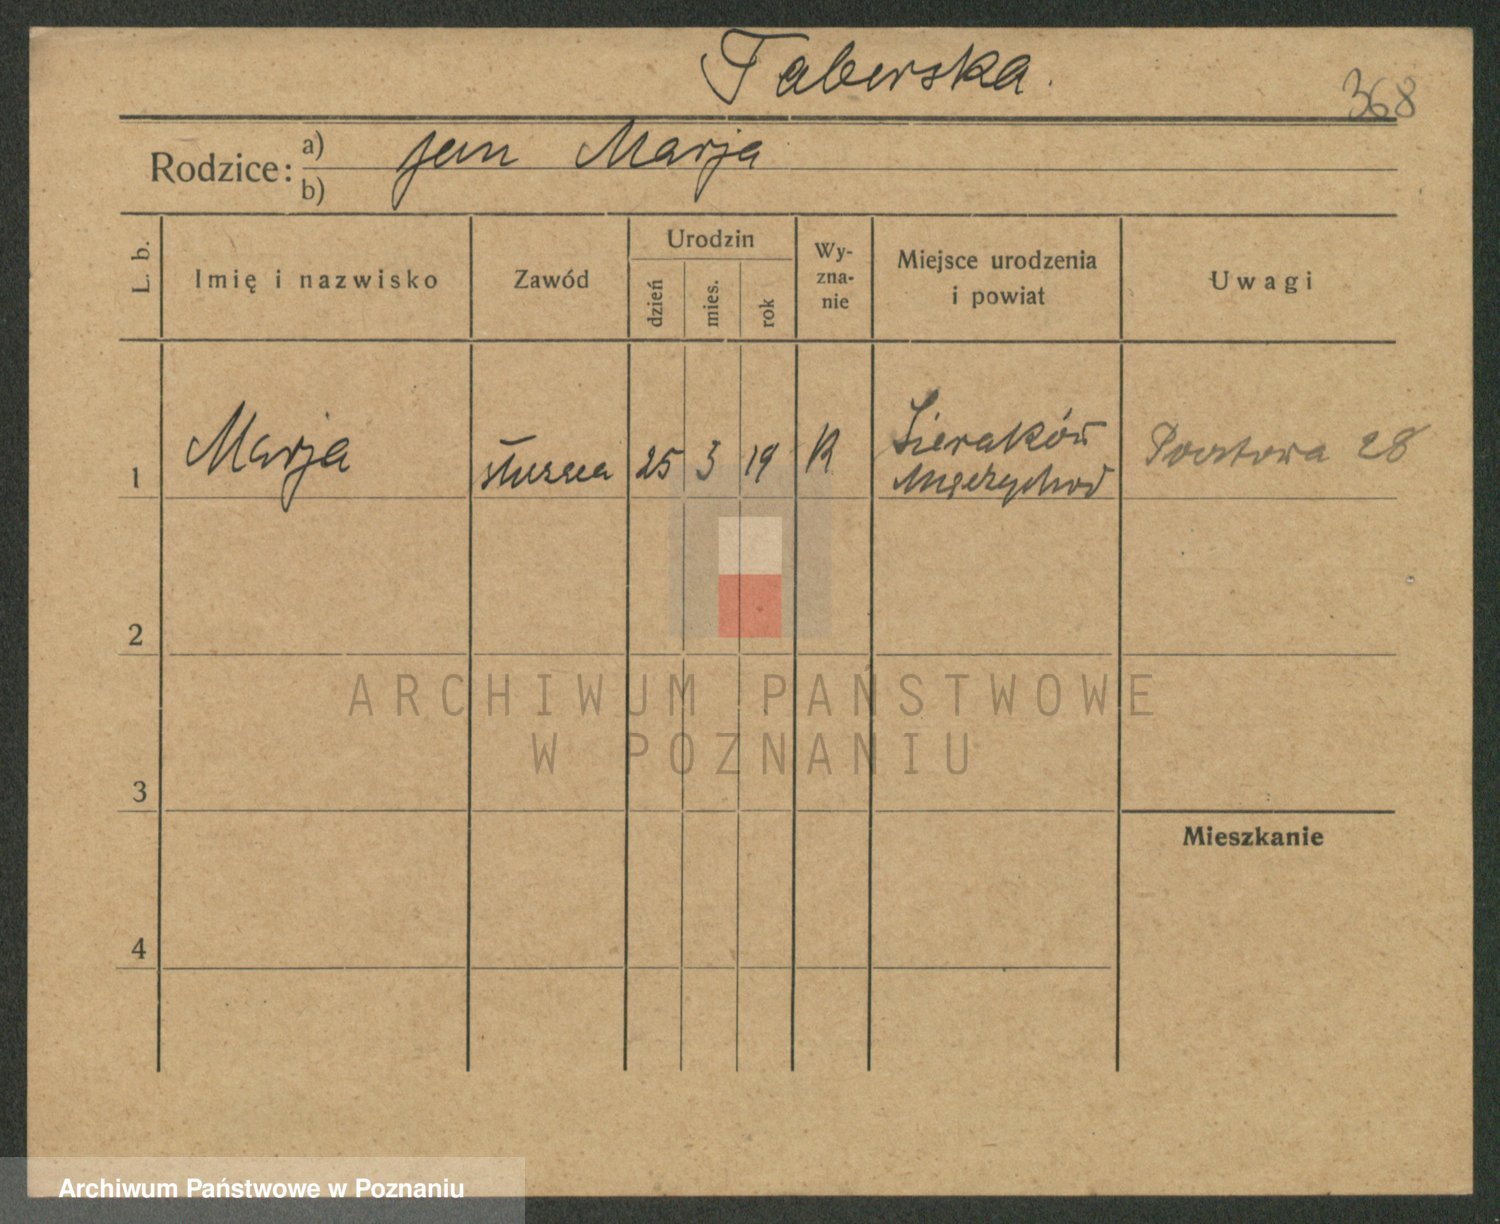 Taberska.
368
Rodzice: a) Jan Marja
b)
L. b.
Imię i nazwisko
Zawód
Urodzin
dzień
mies.
rok
Wy-
zna-
nie
Miejsce urodzenia
i powiat
Uwagi
1 Marja służąca 25 3 19 R Sieraków
Międzychód
Pocztowa 28
2
3
Mieszkanie
4
ARCHIWUM PAŃSTWOWE
W POZNANIU
Archiwum Państwowe w Poznaniu